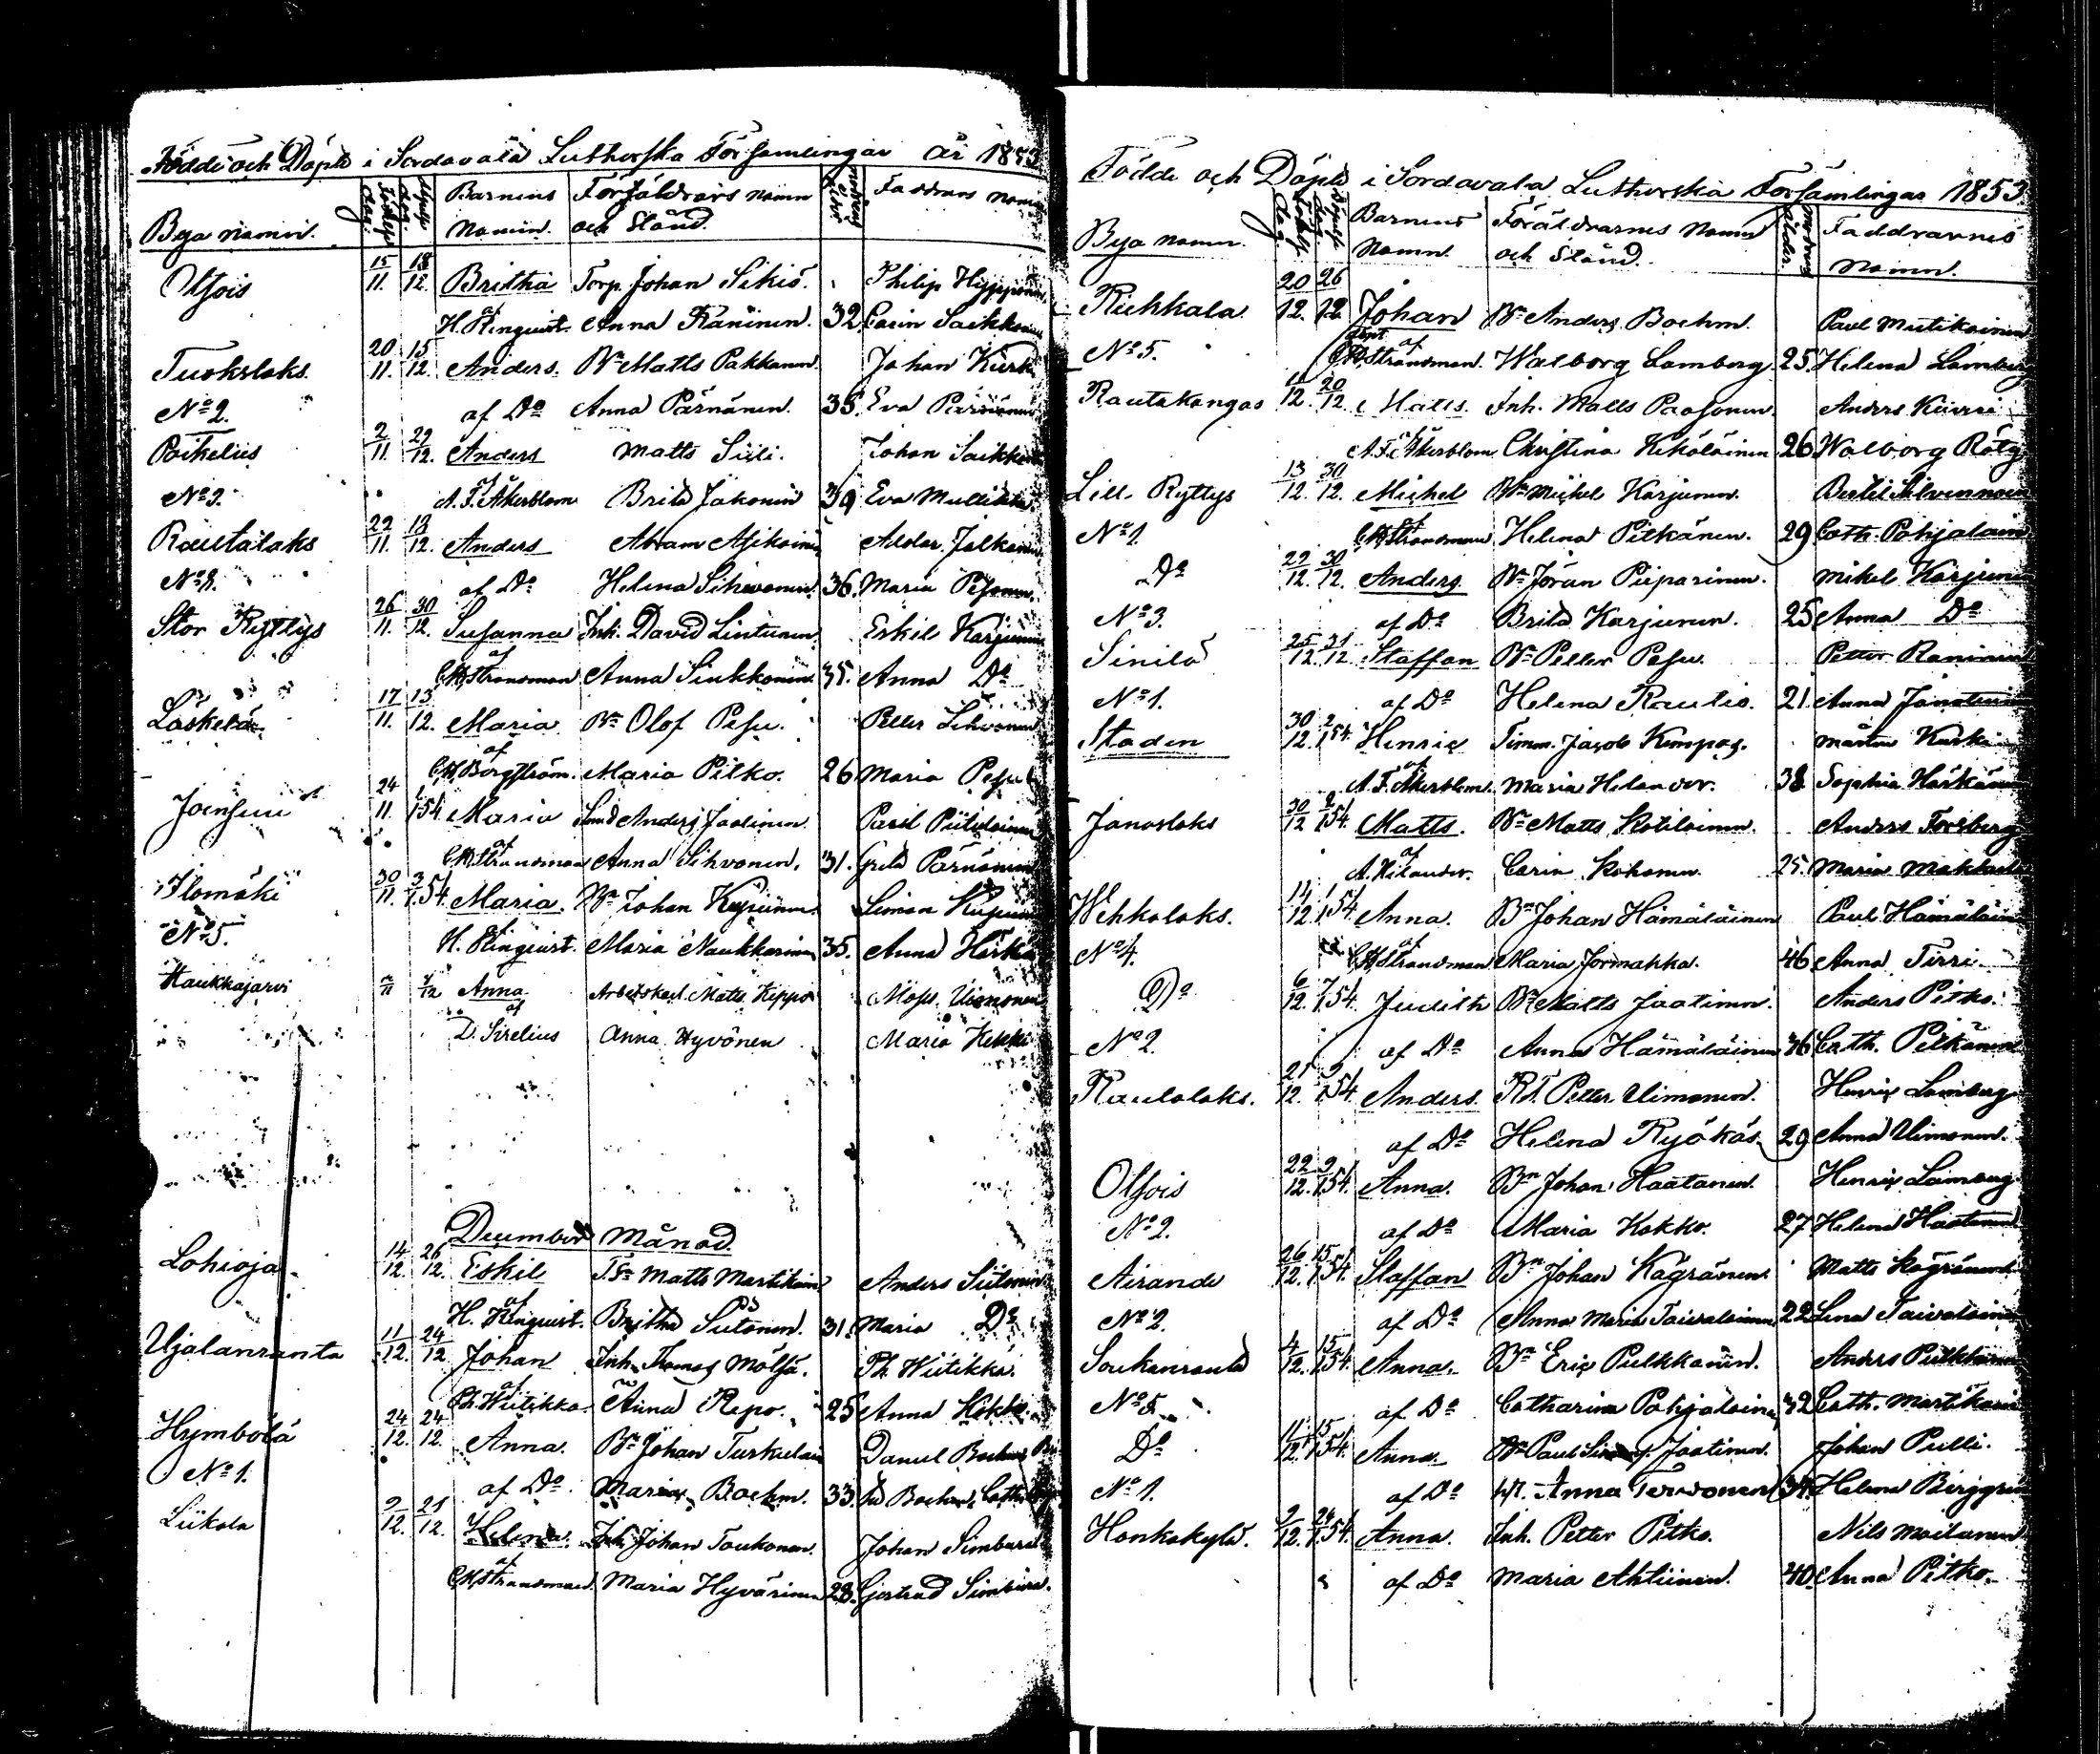 Födde och Döpte i Sordavala Lutherska Församlingar år 1853
Bya namn. Födelse dag Döpelse dag Barnens Namn. Föräldrars namn och Stånd. Modrens ålder Faddrars namn
Otsois 15/11. 18/12. Britha Torp. Johan Sikiö. Philip Hyppönen
af H. Ringvist. Anna Räninen. 32 Carin Saikkonen
Tuokslaks 20/11. 15/12. Anders. Bn Matts Pakkanen. Johan Kurki
No 2. af Do Anna Pärnänen. 35. Eva Pärnänen
Poikelus 2/11. 29/12. Anders Matts Siili. Johan Saikkonen
No 3. af A. F. Åkerblom Brita Jakonen 39 Eva Mullikka
Rautalaks 22/11. 13/12. Anders Abram Asikainen Adolar. Jalkanen
No 8. af Do Helena Sihvonen. 36. Maria Pesonen.
Stor Rytlys 26/11. 30/12. Susanna Inh. David Lintunen. Eskil Karjunen
af CH Strandman Anna Sinkkonen 35. Anna Do
Läskelä 17/11. 13/12. Maria Bn Olof Pesu. Petter Sihvonen
af CH Borgström. Maria Pitko. 26 Maria Pesu
Joensuu 24/11. 1/1 54. Maria Anders Jaatinen Pavil Piitulainen
af CH Strandman Anna Sihvonen. 31. Greta Pärnänen
Ilomäki 30/11. 3/1 54. Maria. Bn Johan Kupiainen. Simon
No 5. af H. Ringvist. Maria Naukkarinen 35. Anna Härkö
Haukkajarvi 2/11 4/12 Anna Arbetskarl Matts Kippo Moses. Uimonen
af D. Sirelius Anna Hyvönen Maria Kekki
December Månad.
Lohioja 14/12. 26/12. Eskil Tsn Matts Martikainen Anders Siitonen
af H. Ringvist. Britha Siitonen. 31. Maria Do
Ujalanranta 11/12. 24/12 Johan Inh. Thomas Mölsä. Th. Hiitikkä.
af Th. Hiitikka. Anna Repo. 25 Anna Kokko.
Hymbölä 24/12. 24/12. Anna. Bn Johan Turkulain Daniel Boehm
No 1. af Do. Maria Boehm. 33.
Liikola 9/12. 21/12. Helena. Inh. Johan Toukonen. Johan Simbura
af CH Strandman. Maria Hyvärinen 28. Gertrud Simbura.
Födde och Döpte i Sordavala Lutherska Församlingar 1853
Bya namn. Födelse dag Döpelse dag Barnens Namn. Föräldrarnes Namn och Stånd. Modrens ålder. Faddrarnes Namn.
Riekkala 20/12. 26/12 Johan Bn Anders Boehm. Paul Mutikainen
No 5. af CH Strandman. Walborg Lamberg. 25. Helena Lamberg
Rautakangas 11/12. 20/12. Matts. Inh. Matts Paasonen Anders Kiuru
af A. F. Åkerblom Christina Kekäläinen 26 Walborg Rötg
Lill. Ryttys 13/12. 30/12. Michel Bn Michel Karjunen. Bertil Silvennoinen
No 1. af CH Strandman Helena Pitkänen. 29 Cath. Pohjalain
Do 22/12. 30/12. Anders. Bn Jöran Piiparinen. Mikel Karjunen
No 3. af Do Brita Karjunen. 25 Anna Do
Sinilä 25/12 31/12 Staffan Bn Petter Pesu. Petter Raninen
No 1. af Do Helena Rautio. 21. Anna Janatuinen
Staden 30/12. 2/1 54. Henric Timm. Jacob Kempas. Mårten Kurki
af A. F. Åkerblom. Maria Helander. 38. Sophia Härkönen
Janaslaks 30/12 2/1 54. Matts. Bn Matts Kotilainen. Anders Forsberg
af A. Kilander. Carin Kohonen 25. Maria Makkonen
Wehkalaks. 14/12. 1/1 54 Anna. Bn Johan Hämäläinen Paul Hämäläinen
No 4. af CH Strandman Maria Jormakka. 46 Anna Tirri.
Do. 6/12. 7/1 54. Judith Bn Matts Jaatinen. Anders Pitko.
No 2. af Do Anna Hämäläinen 36 Cath. Pitkänen
Rautalaks. 21/12. 9/1 54 Anders. Rt. Petter Uimonen. Henric Lamberg
af Do Helena Ryökäs 29 Anna Uimonen.
Otsois 22/12. 9/1 54. Anna. Bn Johan Haatanen. Henric Lamberg.
No 2. af Do Maria Kokko. 27 Helena Haatanen
Airande 26/12. 15/1 54. Staffan Bn Johan Kägränen. Matts Kägränen
No 2. af Do Anna Maria Taivalainen 22 Lena Taivalainen
Soukanranta 4/12. 15/1 54. Anna. Bn Eric Pulkkanen. Anders Pulkkanen
No 5. af Do Catharina Pohjalainen 32 Cath. Martikain
Do 11/12. 15/1 54. Anna. Bn Paul Jaatinen. Johan Pulli.
No 1. af Do Anna Tervonen 34. Helena Berggren
Honkakylä. 2/12. 24/1 54. Anna. Inh. Petter Pitko. Nils Moilanen
af Do Maria Ahtinen. 40. Anna Pitko.